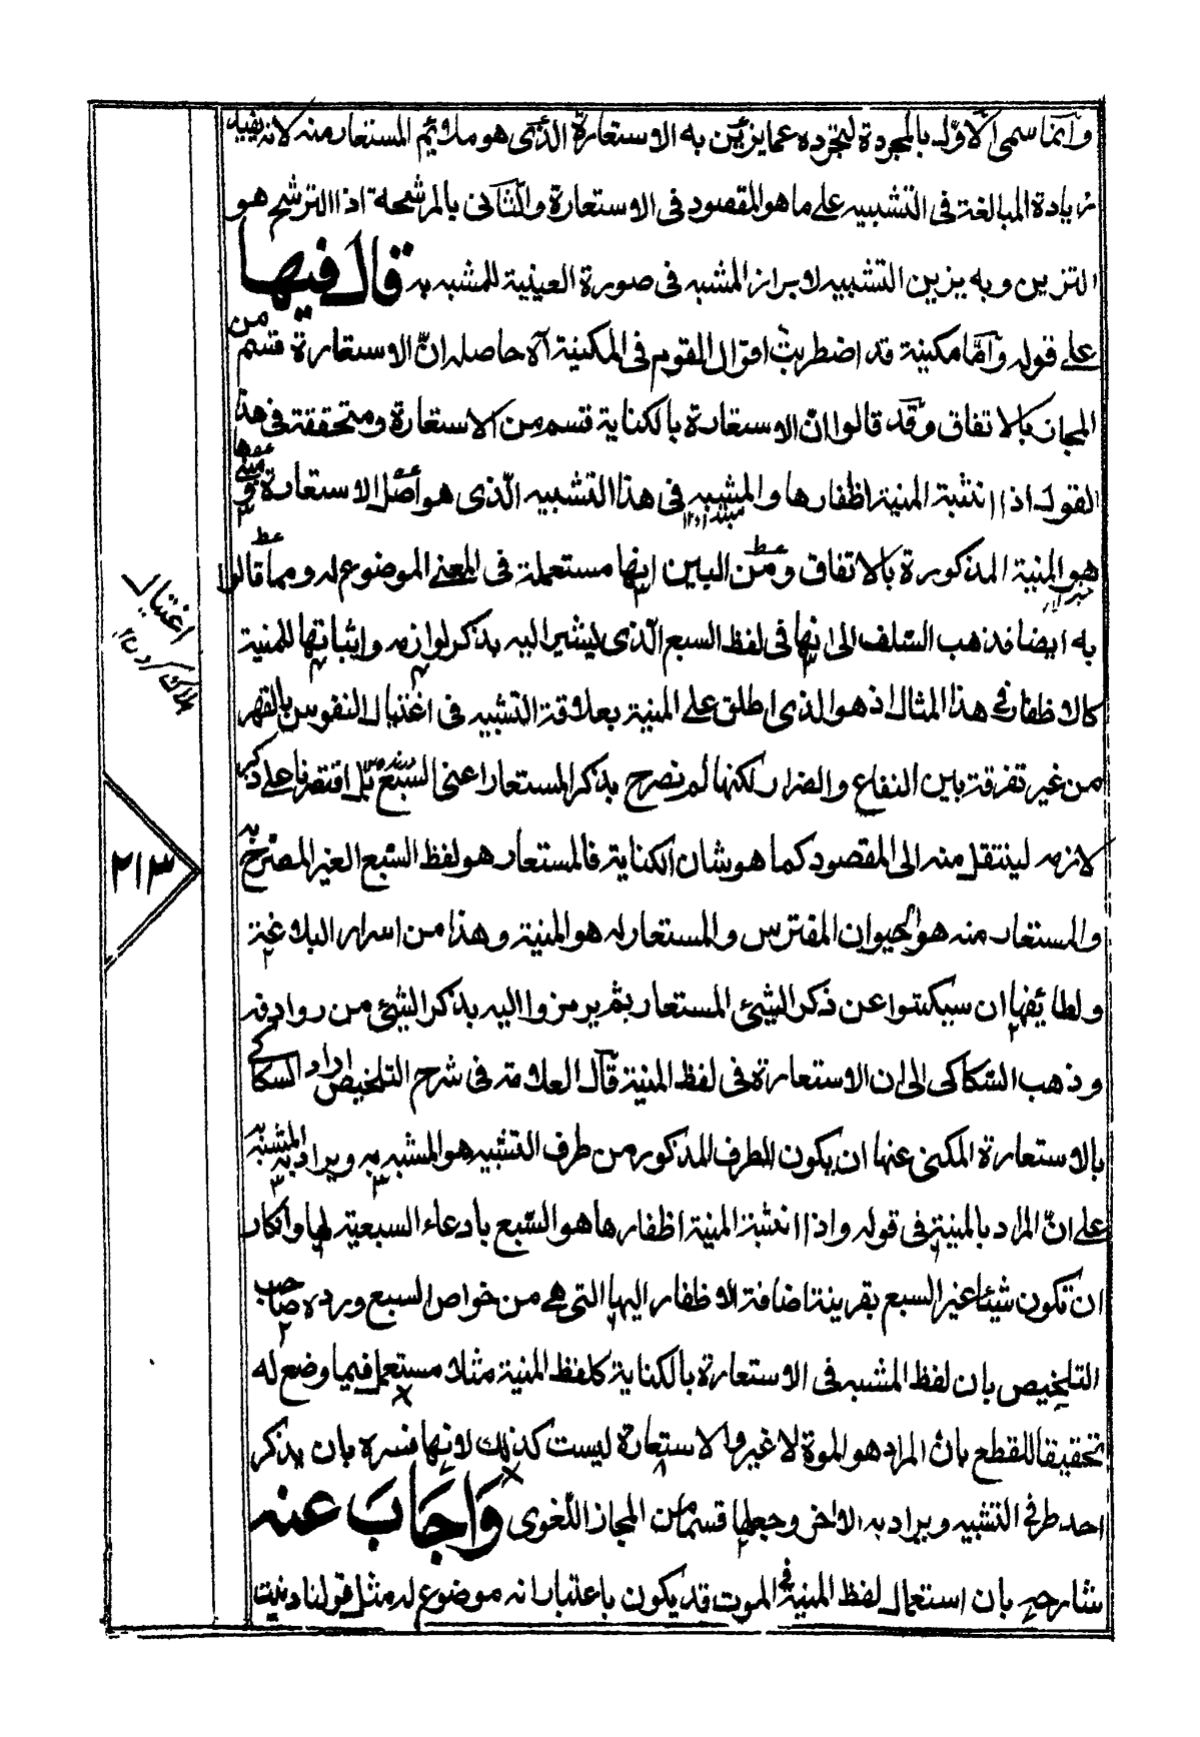 وانما سمى الاول بالمجردة لتجرده عما يزين به الاستعارة الذى هو ملائم المستعار منه لانه يفيد
زيادة المبالغة فى التشبيه على ما هو المقصود فى الاستعارة والثانى بالمرشحة اذا الترشح هو
التزين وبه يزين التشبيه لابراز المشبه فى صورة العينية للمشبه به قال فيها
على قوله واما مكنية قد اضطربت اقوال القوم فى المكنية آه حاصله ان الاستعارة قسم من
المجاز بالاتفاق وقد قالوا ان الاستعارة بالكناية قسم من الاستعارة ومتحققة فى هذا
القول اذا انشبة المنية اظفارها والمشبه فى هذا التشبيه الذى هو اصل الاستعارة و
هو المنية المذكورة بالاتفاق ومن البين انها مستعملة فى المعنى الموضوع له ومما قالوا
به ايضا فذهب السلف الى انها فى لفظ السبع الذى يشير اليه بذكر لوازمه واثباتها للمنية
كالاظفار فى هذا المثال اذ هو الذى اطلق على المنية بعلاقة التشبيه فى اغتيال النفوس بالقهر
من غير تفرقة بين النفاع والضرار لكنها لم نصرح بذكر المستعار اعنى السبع بل اقتصرنا على ذكر
لازمه لينتقل منه الى المقصود كما هو شان الكناية فالمستعار هو لفظ السبع الغير المصرح به
والمستعار منه هو الحيوان المفترس والمستعار له هو المنية وهذا من اسرار البلاغة
ولطائفها ان سيكتوا عن ذكر الشئ المستعار ثم يرمزوا اليه بذكر الشئ من روادفه
وذهب السكاكى الى ان الاستعارة فى لفظ المنية قال العلامة فى شرح التلخيص اراد السكاكى
بالاستعارة المكنى عنها ان يكون الطرف المذكور من طرف التشبيه هو المشبه به ويراد به المشبه به
على ان المراد بالمنية فى قوله واذا انشبة المنية اظفارها هو السبع بادعاء السبعية لها وانكار
ان تكون شيئا غير السبع بقرينة اضافة الاظفار اليها التى هى من خواص السبع ورده صاحب
التلخيص بان لفظ المشبه فى الاستعارة بالكناية كلفظ المنية مثلا مستعمل فيما وضع له
تحقيقا للقطع بان المراد هو الموة لا غير والاستعارة ليست كذلك لانها فسره بان يذكر
احد طرفى التشبيه ويراد به الاخر وجعلها قسما من المجاز اللغوى واجاب عنه
شارحه بان استعمال لفظ المنية فى الموت قد يكون باعتبار انه موضوع له مثل قولنا دنيت
اغتيال
٢١٣